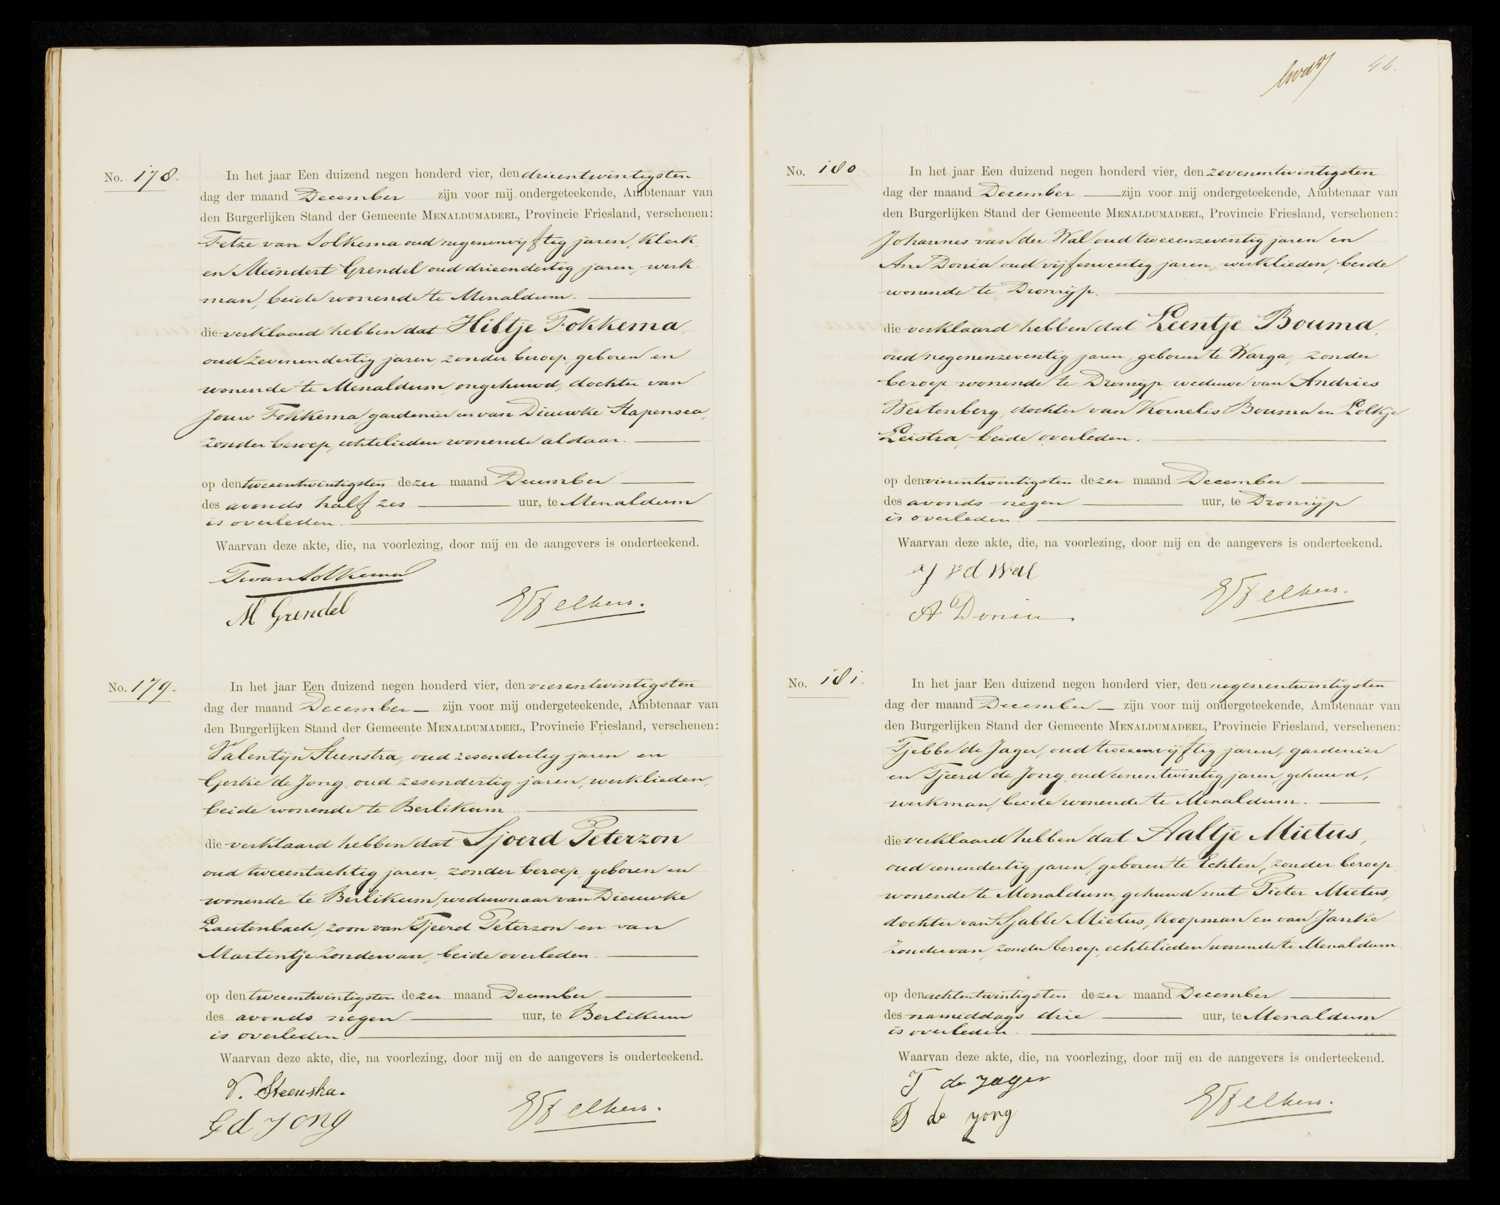 No. 178.
In het jaar Een duizend negen honderd vier, den drieentwintigsten
dag der maand December zijn voor mij ondergeteekende, Ambtenaar van
den Burgerlijken Stand der Gemeente MENALDUMADEEL, Provincie Friesland, verschenen:
Tetze van Solkema oud negenenvijftig jaren, klerk
en Meindert Grendel oud drieendertig jaren, werk
man, beide wonende te Menaldum.
die verklaard hebben dat Hiltje Fokkema,
oud zevenendertig jaren, zonder beroep, geboren en
wonende te Menaldum, ongehuwd, dochter van
Jouw Fokkema, gardenier en van Dieuwke Stapensea,
zonder beroep, echtelieden wonende aldaar.
op den tweeentwintigsten dezer maand December
des avonds half zes uur, te Menaldum
is overleden.
Waarvan deze akte, die, na voorlezing, door mij en de aangevers is onderteekend.
T van Solkema
M Grendel
No. 179.
In het jaar Een duizend negen honderd vier, den vierentwintigsten
dag der maand December zijn voor mij ondergeteekende, Ambtenaar van
den Burgerlijken Stand der Gemeente MENALDUMADEEL, Provincie Friesland, verschenen:
Valentijn Steenstra, oud zesendertig jaren en
Gerke de Jong, oud zesendertig jaren, werklieden,
beide wonende te Berlikum
die verklaard hebben dat Sjoerd Peterzon
oud tweeentachtig jaren, zonder beroep, geboren en
wonende te Berlikum, weduwnaar van Dieuwke
Lautenbach, zoon van Tjeerd Peterzon en van
Martentje Zondervan, beide overleden.
op den tweeentwintigsten dezer maand December
des avonds negen uur, te Berlikum
is overleden.
Waarvan deze akte, die, na voorlezing, door mij en de aangevers is onderteekend.
V. Steenstra.
G d Jong
46.
No. 180
In het jaar Een duizend negen honderd vier, den zevenentwintigsten
dag der maand December zijn voor mij ondergeteekende, Ambtenaar van
den Burgerlijken Stand der Gemeente MENALDUMADEEL, Provincie Friesland, verschenen:
Johannes van der Wal oud tweeenzeventig jaren en
Ane Donia oud vijfenveertig jaren, werklieden, beide
wonende te Dronrijp.
die verklaard hebben dat Leentje Bouma,
oud negenenzeventig jaren, geboren te Warga, zonder
beroep wonende te Dronrijp weduwe van Andries
Wertenberg, dochter van Kornelis Bouma en Lolkje
Leistra, beide overleden.
op den vierentwintigsten dezer maand December
des avonds negen uur, te Dronrijp
is overleden
Waarvan deze akte, die, na voorlezing, door mij en de aangevers is onderteekend.
J v d Wal
A Donia
No. 181.
In het jaar Een duizend negen honderd vier, den negenentwintigsten
dag der maand December zijn voor mij ondergeteekende, Ambtenaar van
den Burgerlijken Stand der Gemeente MENALDUMADEEL, Provincie Friesland, verschenen:
Tjebbe de Jager, oud tweeenvijftig jaren, gardenier
en Tjeerd de Jong, oud eenentwintig jaren, gehuwd,
werkman, beide wonende te Menaldum.
die verklaard hebben dat Aaltje Mietus,
oud eenendertig jaren, geboren te Echten, zonder beroep
wonende te Menaldum, gehuwd met Pieter Mietus,
dochter van Sjabbe Mietus, koopman en van Jantje
Zondervan, zonder beroep, echtelieden wonende te Menaldum
op den achtentwintigsten dezer maand December
des nameddags drie uur, te Menaldum
is overleden.
Waarvan deze akte, die, na voorlezing, door mij en de aangevers is onderteekend.
T de Jager
T de Jong